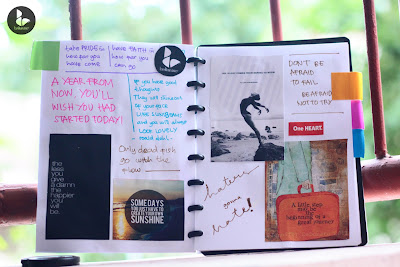 take PRIDE in
how far you
have come
have FAITH in
how far you
can go
A YEAR FROM
NOW, YOU'LL
WISH YOU HAD
STARTED TODAY!
if you have good
thoughts
They will
of your face
LIKE SUNBEAMS
and you will always
LOOK LOVELY
Only dead fish
go with the
flow
the
less
you
give
a damn
the
happier
you
will
be.
SOME DAYS
YOU JUST HAVE TO
CREATE YOUR OWN
SUNSHINE
DON'T BE
AFRAID
TO FAIL
BE AFRAID
NOT TO TRY
One HEART.
haters
gonna
hate!
A little step
may be
the
beginning of
a great journey